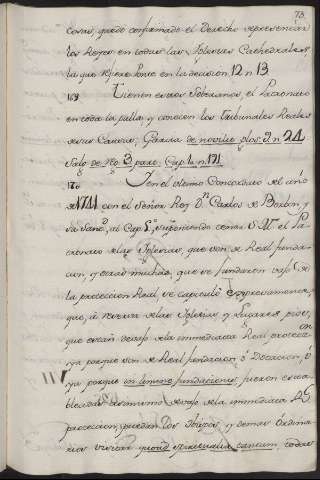 73.
cosas, quedo confirmado el Derecho representar
los Reyes en todas las Iglesias Cathedrales,
la que refiere Ponte en la decision 12 n 13.
169 Tienen estos Soberanos, el Patronato
en toda la pulla, y conocen los Tribunales Reales
de sus Causas, Garcia de novilit. glos. 9. n 24
Salg. de Reg. 3 part. Cap. 1 n 121
170 Y en el ultimo Concordato del año
de 1741 con el Señor Rey Dn Carlos de Borbon, y
su Sand., al Cap. 1º suponiendo tener S. M. el Pa-
tronato de las Iglesias, que son de Real funda-
cion, y otras muchas, que se fundaron vajo de
la proteccion Real se capitulo expresamente,
que, à reserva de las Iglesias y Lugares pios,
que estan devajo de la immediata Real proteccion
ya porque son de Real fundacion ò Dotacion, ò
ya porque in limine fundationis fueron esta-
blecidas devajo de la immediata Rl
proteccion, puedan los Obispos, y demas Ordina-
rios visitar quoad spiritualia tantum, todas